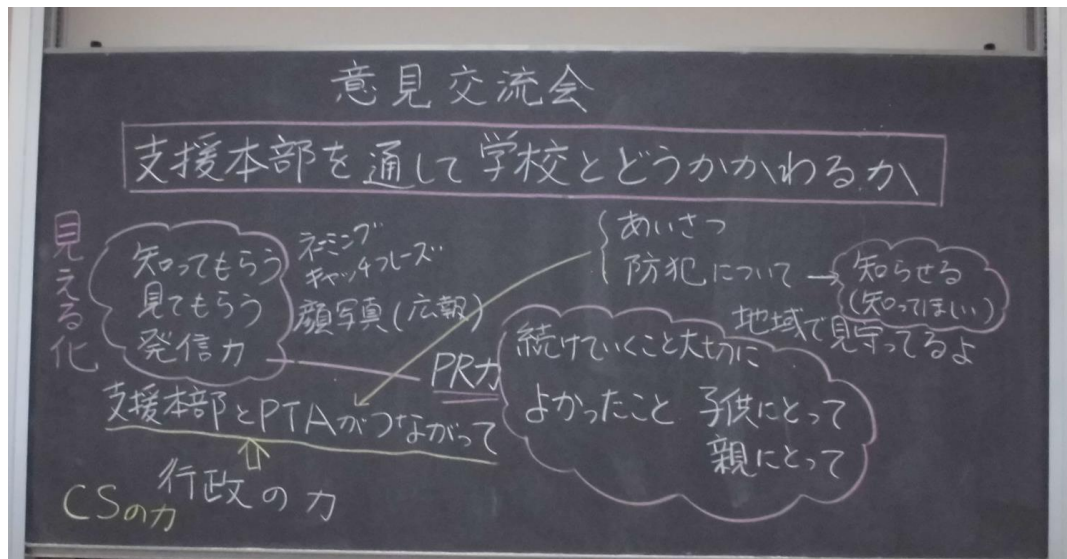 意見交流会
支援本部を通して学校とどうかかわるか
見える化
知ってもらう
見てもらう
発信力
ネーミング
キャッチフレーズ
顔写真(広報)
PR力
あいさつ
防犯について→
知らせる
(知ってほしい)
地域で見守ってるよ
続けていくこと大切に
よかったこと 子供にとって
親にとって
支援本部とPTAがつながって
行政の力
CSの力